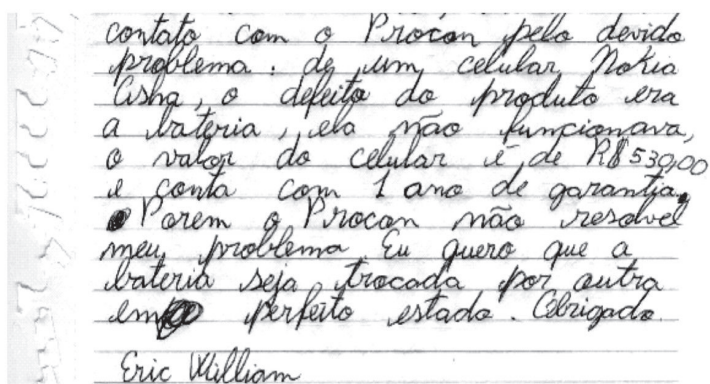 contato com o Procon pelo devido
problema : de um celular Nokia
Asha, o defeito do produto era
a bateria, ela não funcionava,
o valor do celular é de R$ 530,00
e conta com 1 ano de garantia.
Porem o Procon não resolvel
meu problema Eu quero que a
bateria seja trocada por outra
em perfeito estado. Obrigado.
Eric William